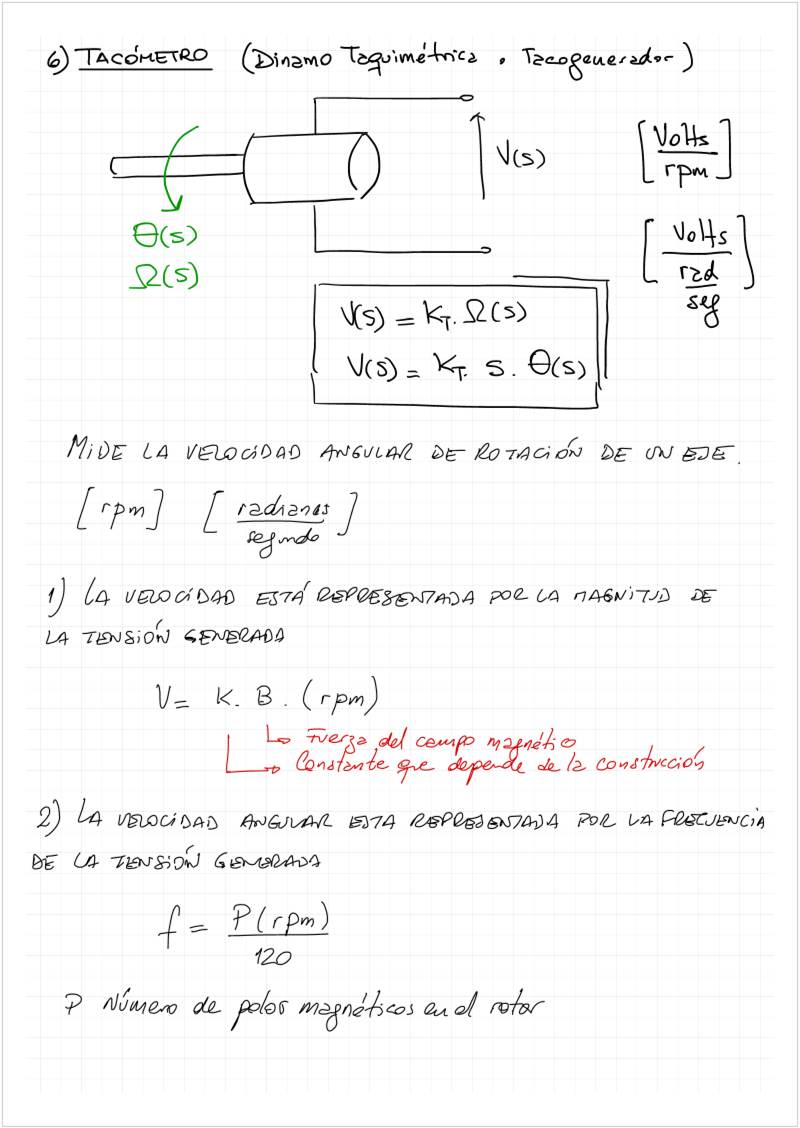 6) TACÓMETRO (Dinamo Taquimétrica o Tacogenerador)
V(s)
[Volts/rpm]
θ(s)
Ω(s)
[Volts/(rad/seg)]
V(s) = K_T. Ω(s)
V(s) = K_T. s. θ(s)
MIDE LA VELOCIDAD ANGULAR DE ROTACIÓN DE UN EJE.
[rpm] [radianes/segundo]
1) LA VELOCIDAD ESTÁ REPRESENTADA POR LA MAGNITUD DE
LA TENSIÓN GENERADA
V = K. B. (rpm)
Fuerza del campo magnético
Constante que depende de la construcción
2) LA VELOCIDAD ANGULAR ESTA REPRESENTADA POR LA FRECUENCIA
DE LA TENSIÓN GENERADA
f = P(rpm)/120
P Número de polos magnéticos en el rotor